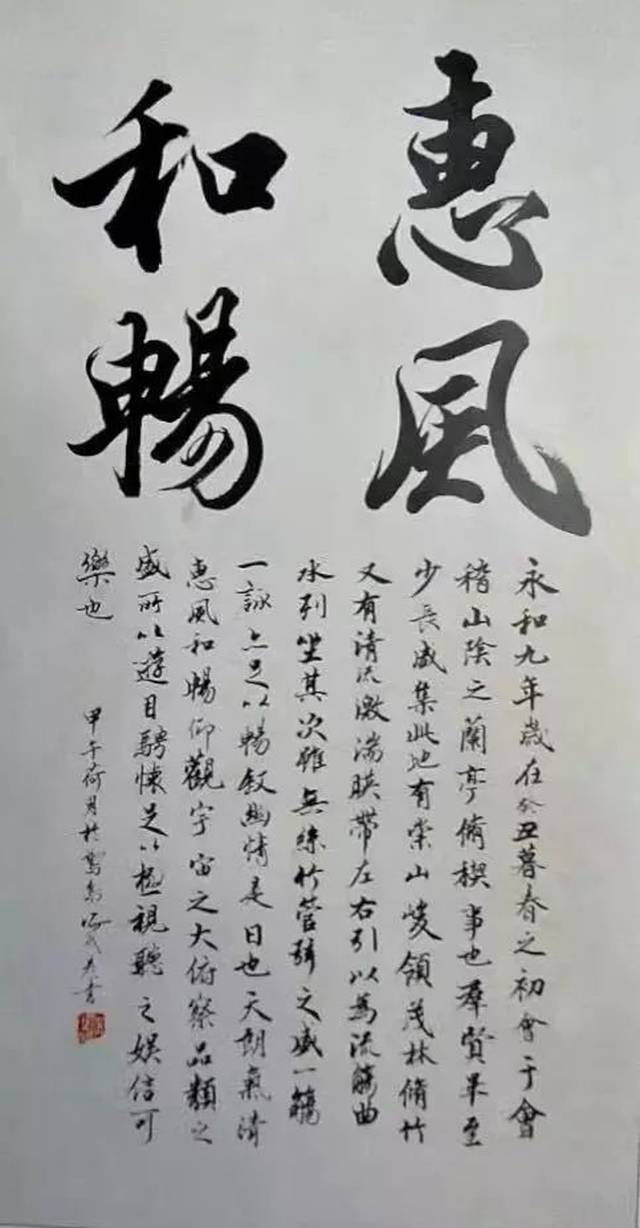 惠風
和暢
永和九年歲在癸丑暮春之初會于會
稽山陰之蘭亭脩稧事也羣賢畢至
少長咸集此地有崇山峻領茂林脩竹
又有清流激湍映帶左右引以為流觴曲
水列坐其次雖無絲竹管弦之盛一觴
一詠亦足以暢敘幽情是日也天朗氣清
惠風和暢仰觀宇宙之大俯察品類之
盛所以遊目騁懷足以極視聽之娛信可
樂也
甲午荷月於
書